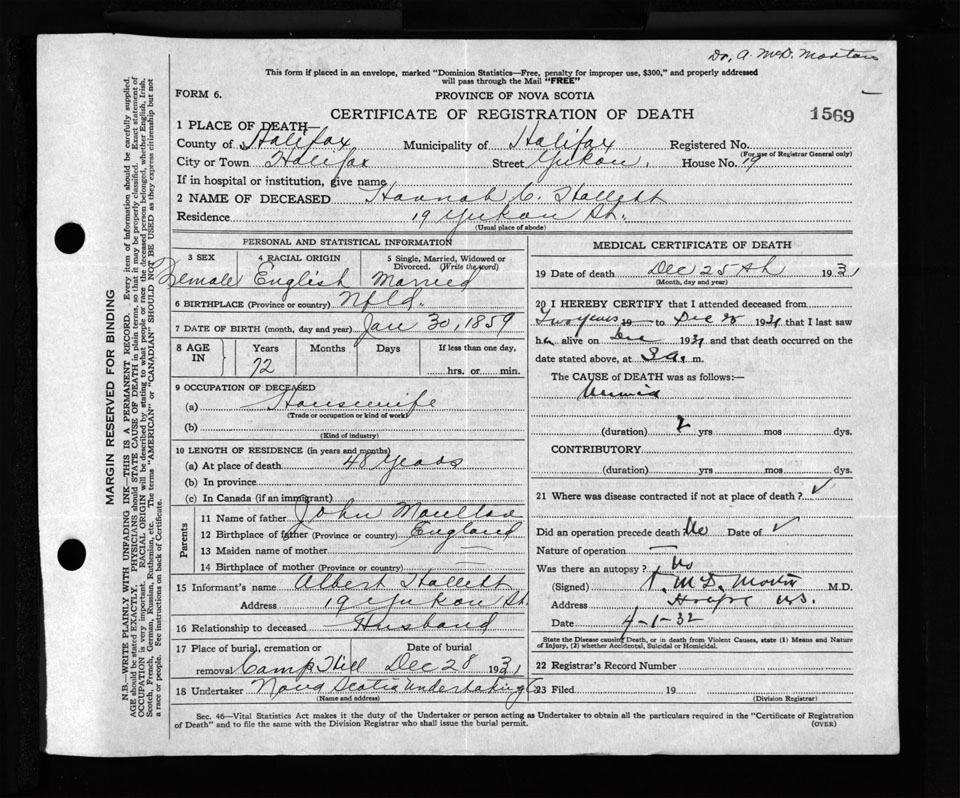 Dr. A. McD. Morton
This form if placed in an envelope, marked "Dominion Statistics—Free, penalty for improper use, $300," and properly addressed
will pass through the Mail "FREE"
FORM 6.
PROVINCE OF NOVA SCOTIA
CERTIFICATE OF REGISTRATION OF DEATH
1569
1 PLACE OF DEATH—
County of Halifax Municipality of Halifax Registered No.
(For use of Registrar General only)
City or Town Halifax Street Yukon House No. 19
If in hospital or institution, give name
2 NAME OF DECEASED Hannah C. Hallett
Residence 19 Yukon St.
(Usual place of abode)
PERSONAL AND STATISTICAL INFORMATION
3 SEX 4 RACIAL ORIGIN 5 Single, Married, Widowed or
Divorced. (Write the word)
Female English Married
6 BIRTHPLACE (Province or country) Nfld.
7 DATE OF BIRTH (month, day and year) Jan 30, 1859
8 AGE IN Years Months Days If less than one day,
72 hrs. or min.
9 OCCUPATION OF DECEASED
(a) Housewife
(Trade or occupation or kind of work)
(b)
(Kind of industry)
10 LENGTH OF RESIDENCE (in years and months)
(a) At place of death 48 Years
(b) In province
(c) In Canada (if an immigrant)
Parents
11 Name of father John
12 Birthplace of father (Province or country) England
13 Maiden name of mother —
14 Birthplace of mother (Province or country) —
15 Informant's name Albert Hallett
Address 19 Yukon St
16 Relationship to deceased Husband
17 Place of burial, cremation or Date of burial
removal Camp Hill Dec 28 1931
18 Undertaker Nova Scotia Undertaking Co
(Name and address)
MEDICAL CERTIFICATE OF DEATH
19 Date of death Dec 25th 1931
(Month, day and year)
20 I HEREBY CERTIFY that I attended deceased from
Two years 19 to Dec 25 1931 that I last saw
her alive on Dec 1931 and that death occurred on the
date stated above, at 3 a. m.
The CAUSE of DEATH was as follows:—
(duration) 2 yrs mos dys.
CONTRIBUTORY
(duration) yrs mos dys.
21 Where was disease contracted if not at place of death? ✓
Did an operation precede death No Date of ✓
Nature of operation —
Was there an autopsy? No
(Signed) A. McD. Morton M.D.
Address Halifax N.S.
Date 4-1-32
State the Disease causing Death, or in death from Violent Causes, state (1) Means and Nature
of Injury, (2) whether Accidental, Suicidal or Homicidal.
22 Registrar's Record Number
23 Filed 19
(Division Registrar)
Sec. 46—Vital Statistics Act makes it the duty of the Undertaker or person acting as Undertaker to obtain all the particulars required in the "Certificate of Registration
of Death" and to file the same with the Division Registrar who shall issue the burial permit. (OVER)
MARGIN RESERVED FOR BINDING
N.B.—WRITE PLAINLY WITH UNFADING INK—THIS IS A PERMANENT RECORD. Every item of information should be carefully supplied.
AGE should be stated EXACTLY. PHYSICIANS should STATE CAUSE OF DEATH in plain terms, so that it may be properly classified. Exact statement of
OCCUPATION is very important. RACIAL ORIGIN will be described by stating to what people or race the deceased person belonged, whether English, Irish,
Scotch, French, German, Russian, Ruthenian, etc. The terms "AMERICAN" or "CANADIAN" SHOULD NOT BE USED as they express citizenship but not
a race or people. See instructions on back of Certificate.